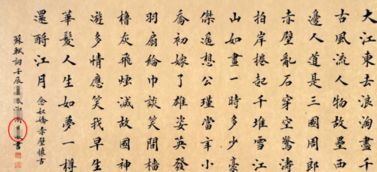 大江東去浪淘盡千
古風流人物故壘西
邊人道是三國周郎
赤壁亂石穿空驚濤
拍岸捲起千堆雪江
山如畫一時多少豪
傑遙想公瑾當年小
喬初嫁了雄姿英發
羽扇綸巾談笑間檣
櫓灰飛煙滅故國神
遊多情應笑我早生
華髮人生如夢一樽
還酹江月
念奴嬌赤壁懷古
蘇軾詞壬辰夏書